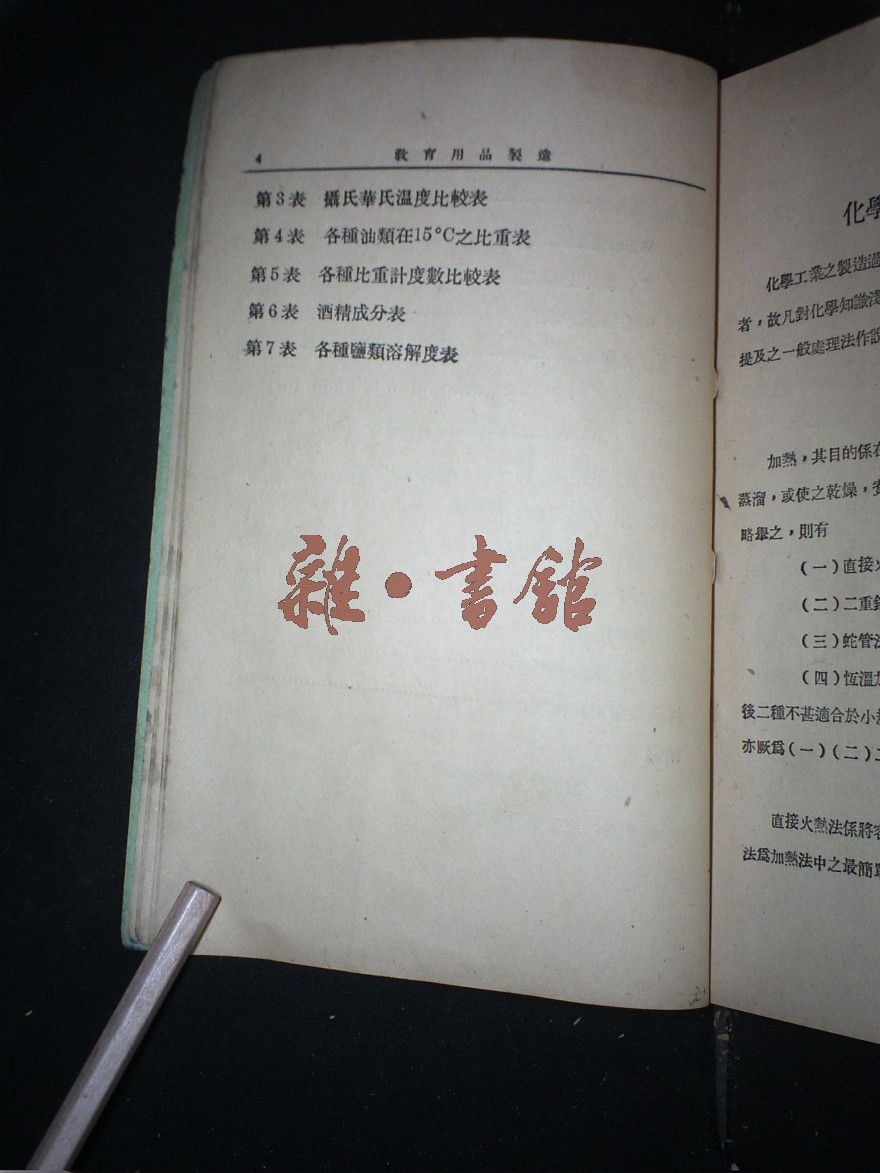 4 教育用品製造
第3表 攝氏華氏溫度比較表
第4表 各種油類在15°C之比重表
第5表 各種比重計度數比較表
第6表 酒精成分表
第7表 各種鹽類溶解度表
雜·書館
化學
化學工業之製造過
者，故凡對化學知識淺
提及之一般處理法作說
加熱，其目的係在
蒸溜，或使之乾燥，
略舉之，則有
（一）直接火
（二）二重鍋
（三）蛇管法
（四）恆溫
後二種不甚適合於小
亦厥爲（一）（二）二
直接火熱法係將容
法爲加熱法中之最簡單